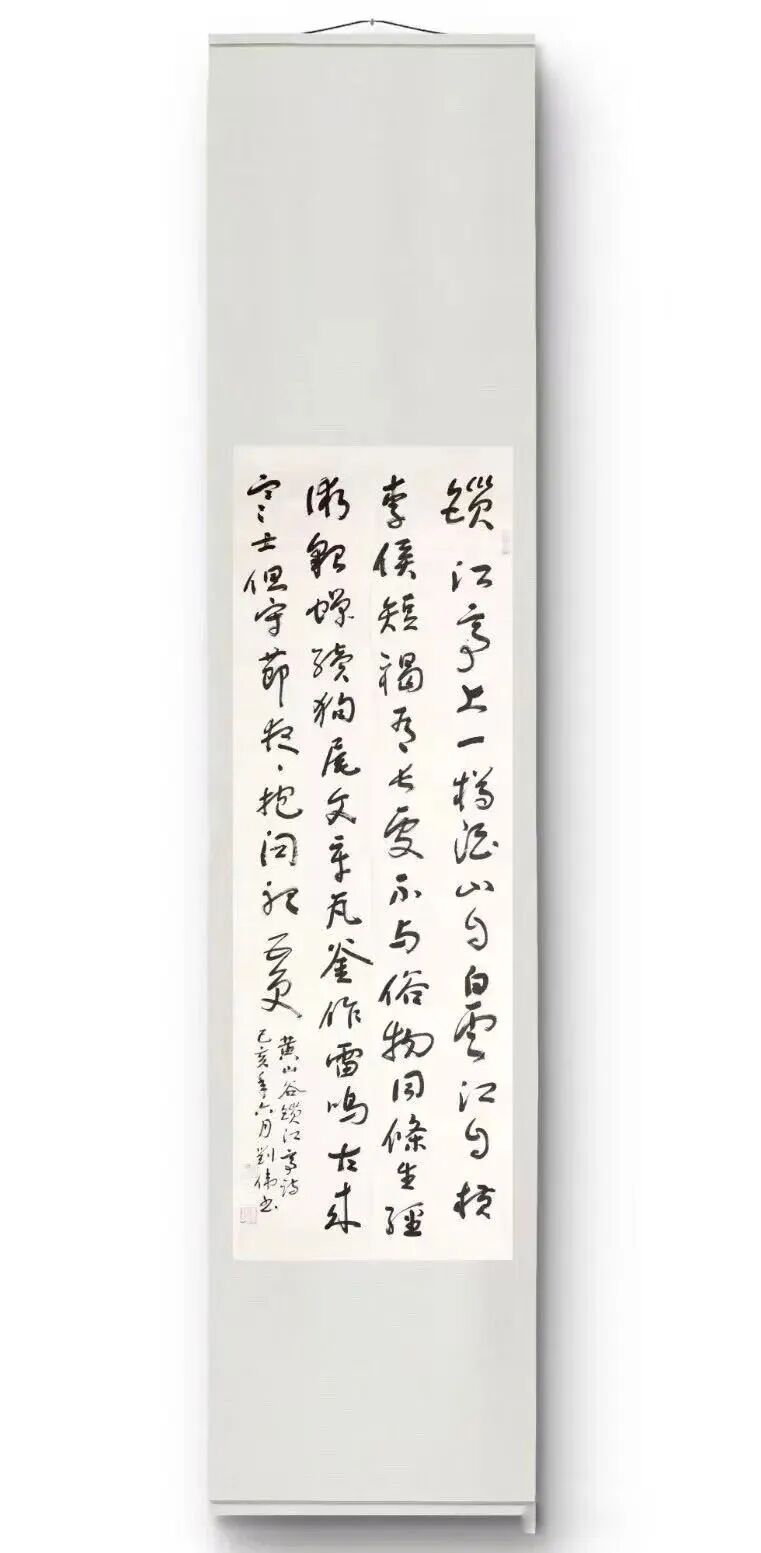 鎖江亭上一樽酒山自白雲江自橫
李侯短褐有長處不与俗物同條生經
術貂蟬續狗尾文章瓦釜作雷鳴古來
寒士但守節夜夜抱関聽五更
黃山谷鎖江亭詩
己亥年六月劉偉書